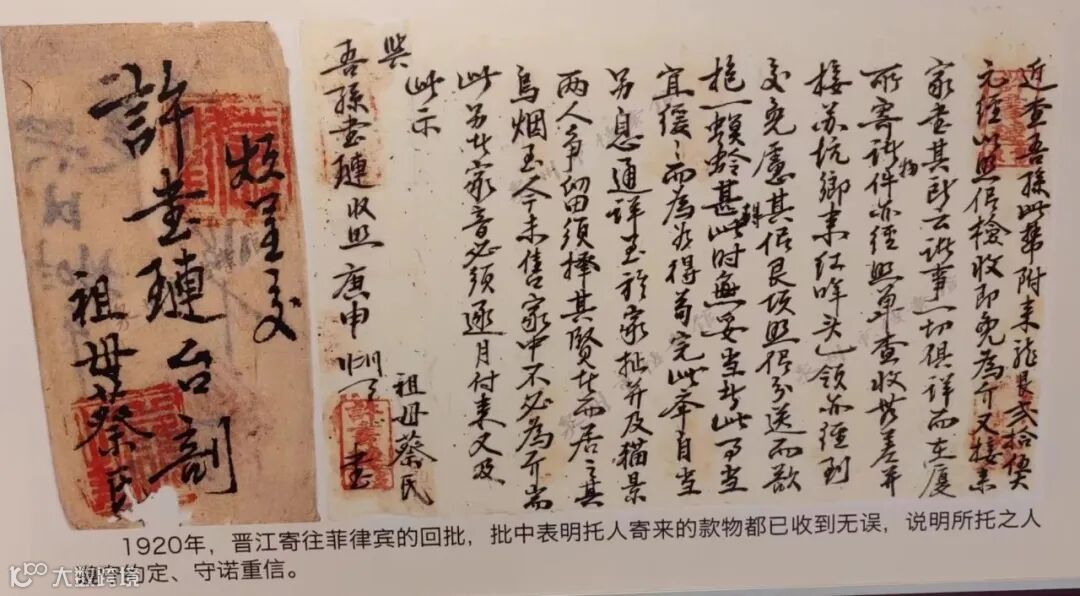 烦呈交
許書璉台剖
祖母蔡氏
近查吾孫此幫附来龍艮弍拾
元經以照信檢收即免為介又接来
家書其云諸事一切俱詳而在厦
所寄諸物件亦經照單查收無差并
接苏坑鄉来紅哖头已領亦經到
交免慮其信艮項照信分送而歆
抱一螟蛉甚難此時無妥当於此
宜缓々而為得苟完此举自当
另息通详至於家批并及猫景
两人争留须择其贤者而居之其
乌烟至今未售家中不必为介尚
此另家音必须逐月付来又及
此示
與
吾孫書璉收照 庚申 書
祖母蔡氏
1920年，晋江寄往菲律宾的回批，批中表明托人寄来的款物都已收到无误，说明所托之人
约定、守诺重信。
大数跨境